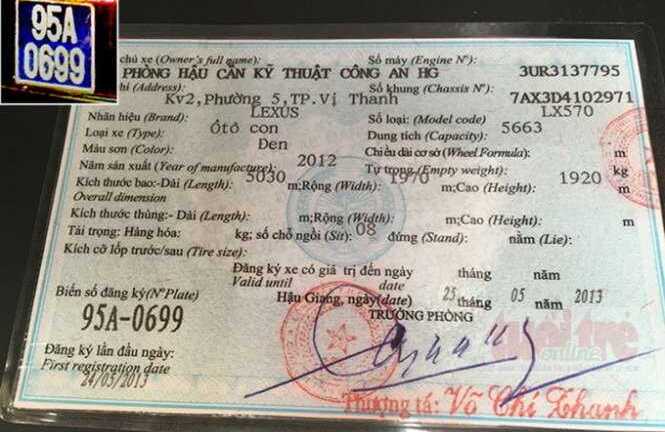 95A
0699
chủ xe (Owner's full name): Số máy (Engine Nº): 3UR3137795
PHÒNG HẬU CẦN KỸ THUẬT CÔNG AN HG
hỉ (Address): Số khung (Chassis Nº): 7AX3D4102971
Kv2,Phường 5,TP.Vị Thanh
Nhãn hiệu (Brand): LEXUS Số loại: (Model code) LX570
Loại xe (Type): Ôtô con Dung tích (Capacity): 5663
Màu sơn (Color): Đen Chiều dài cơ sở (Wheel Formula): m
Năm sản xuất (Year of manufacture): 2012 Tự trọng (Empty weight): kg
Kích thước bao:-Dài (Length): 5030 m;Rộng (Width): 1970 m;Cao (Height): 1920 m
Overall dimension
Kích thước thùng:- Dài (Length): m;Rộng (Width): m;Cao (Height): m
Tải trọng: Hàng hóa: kg; số chỗ ngồi (Sit): 08 đứng (Stand): nằm (Lie):
Kích cỡ lốp trước/sau (Tire size):
Đăng ký xe có giá trị đến ngày tháng năm
Valid until (date)
Biển số đăng ký(NºPlate) Hậu Giang, ngày(date) 25 tháng 05 năm 2013
95A-0699 TRƯỞNG PHÒNG
tuổi trẻ
online
Đăng ký lần đầu ngày:
First registration date
24/05/2013
Thượng tá: Võ Chí Thanh